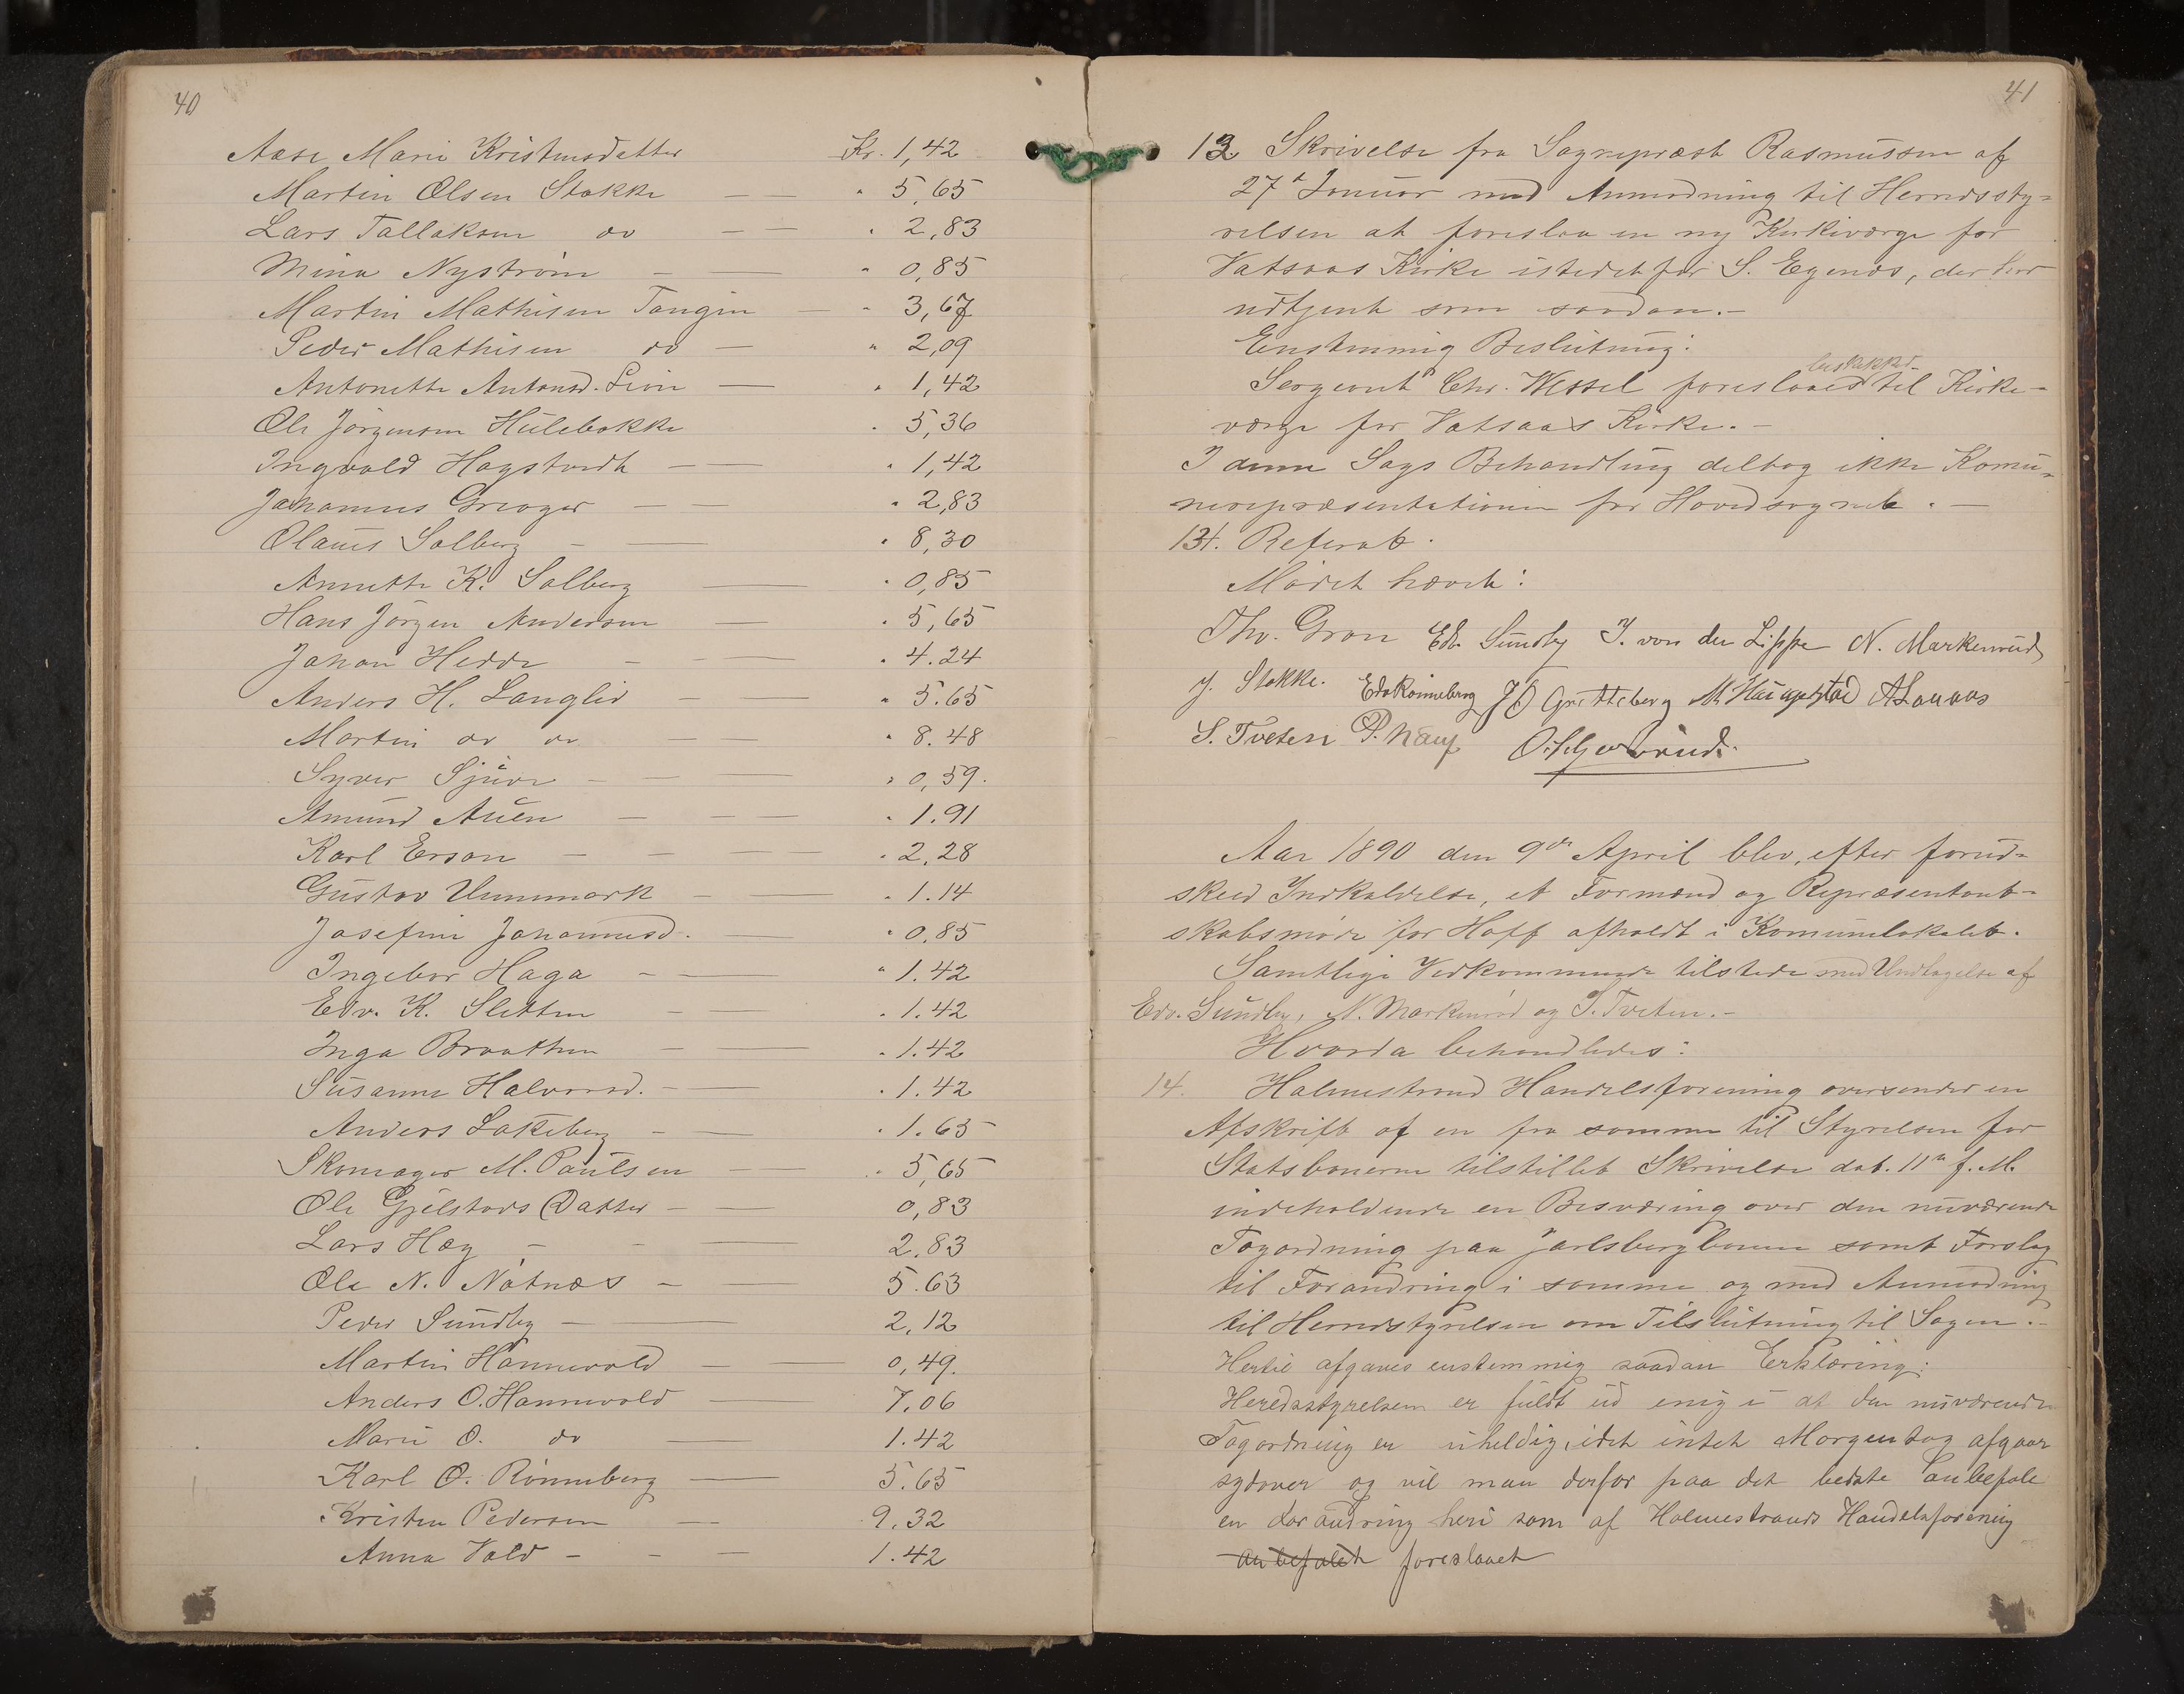 40
Aase Marie Kristensdatter Kr. 1,42
Martin Olsen Stokke — — " 5,65
Lars Tallaksen do — — " 2,83
Mina Nystrøm — — " 0,85
Martin Mathisen Tangen — " 3,67
Peder Mathisen do — " 2,09
Antonette Antonsd. — " 1,42
Ole Jörgensen Hulebakke " 5,36
Ingvald Hagstvedt — — " 1,42
Johannes Greager — — " 2,83
Olaus Solberg — — " 8,30
Annette K. Solberg — " 0,85
Hans Jörgen Andersen — " 5,65
Johan Hedde — — — " 4.24
Anders H. Langlid — — " 5.65
Martin do do — — " 8.48
Syver Sjue — — — " 0,59.
Amund Auen — — — " 1.91
Karl Erson — — — " 2,28
Gustav Ummark — — " 1.14
Josefine Johannesd. — " 0,85
Ingebor Haga — — " 1.42
Edv. K. Sletten — — " 1.42
Inga Braathen — — " 1.42
Susanne Halvorsd. — — " 1.42
Anders Lakeberg — — " 1.65
Skomager M. Paulsen — " 5,65
Ole Gjelstads Datter — — 0,83
Lars Hæg — — — 2.83
Ole N. Nøtnæs — — 5.63
Peder Sundby — — 2,12
Martin Hannevold — — 0,49.
Anders O. Hannevold — 7,06
Marie O. do — 1.42
Karl O. Rönneberg — 5.65
Kristen Pedersen — 9,32
Anna Vold — — — 1.42
41
13 Skrivelse fra Sognepræst Rasmussen af
27de Januar med Anmodning til Herredssty=
relsen at foreslaa en ny Kirkeværge for
Vatsaas Kirke istedetfor S. Egenæs, der har
udtjent som saadan.–
Enstemmig Beslutning:
beskikket
Sergeant Chr. Wessel foreslaaes til Kirke-
værge for Vatsaas Kirke. –
I denne Sags Behandling deltog ikke Komu-
nerepræsentationen for Hovedsognet. —
13t. Referat.
Mødet hævet:
Thv. Gran Edv. Sundby J. von der Lippe N. Markerud
J. Stokke. Edv Rönneberg J O Gretteberg M. Haugestad A Lauaas
S. Tveten P. Nauf
Aar 1890 den 9de April blev, efter forud-
skeed Indkaldelse, et Formænd og Repræsentant-
skabsmøde for Hoff afholdt i Komunelokalet.
Samtlige Vedkommende tilstede med Undtagelse af
Edv. Sundby, N. Markerud og S. Tveten.–
Hvorda behandledes:
14. Holmestrand Handelsforening oversender en
Afskrift af en fra samme til Styrelsen for
Statsbanerne tilstillet Skrivelse dat. 11te f. M.
indeholdende en Besværing over den nuværende
Togordning paa Jarlsbergbanen samt Forslag
til Forandring i samme og med Anmodning
til Herredstyrelsen om Tilslutning til Sagen.–
Hertil afgaves enstemmig saadan Erklæring:
Heredsstyrelsen er fuldt ud enig i at den nuværende
Togordning er uheldig, idet intet Morgentog afgaar
sydover og vil man derfor paa det bedste anbefale
en forandring heri som af Holmestrands Handelsforening
anbefalet foreslaaet